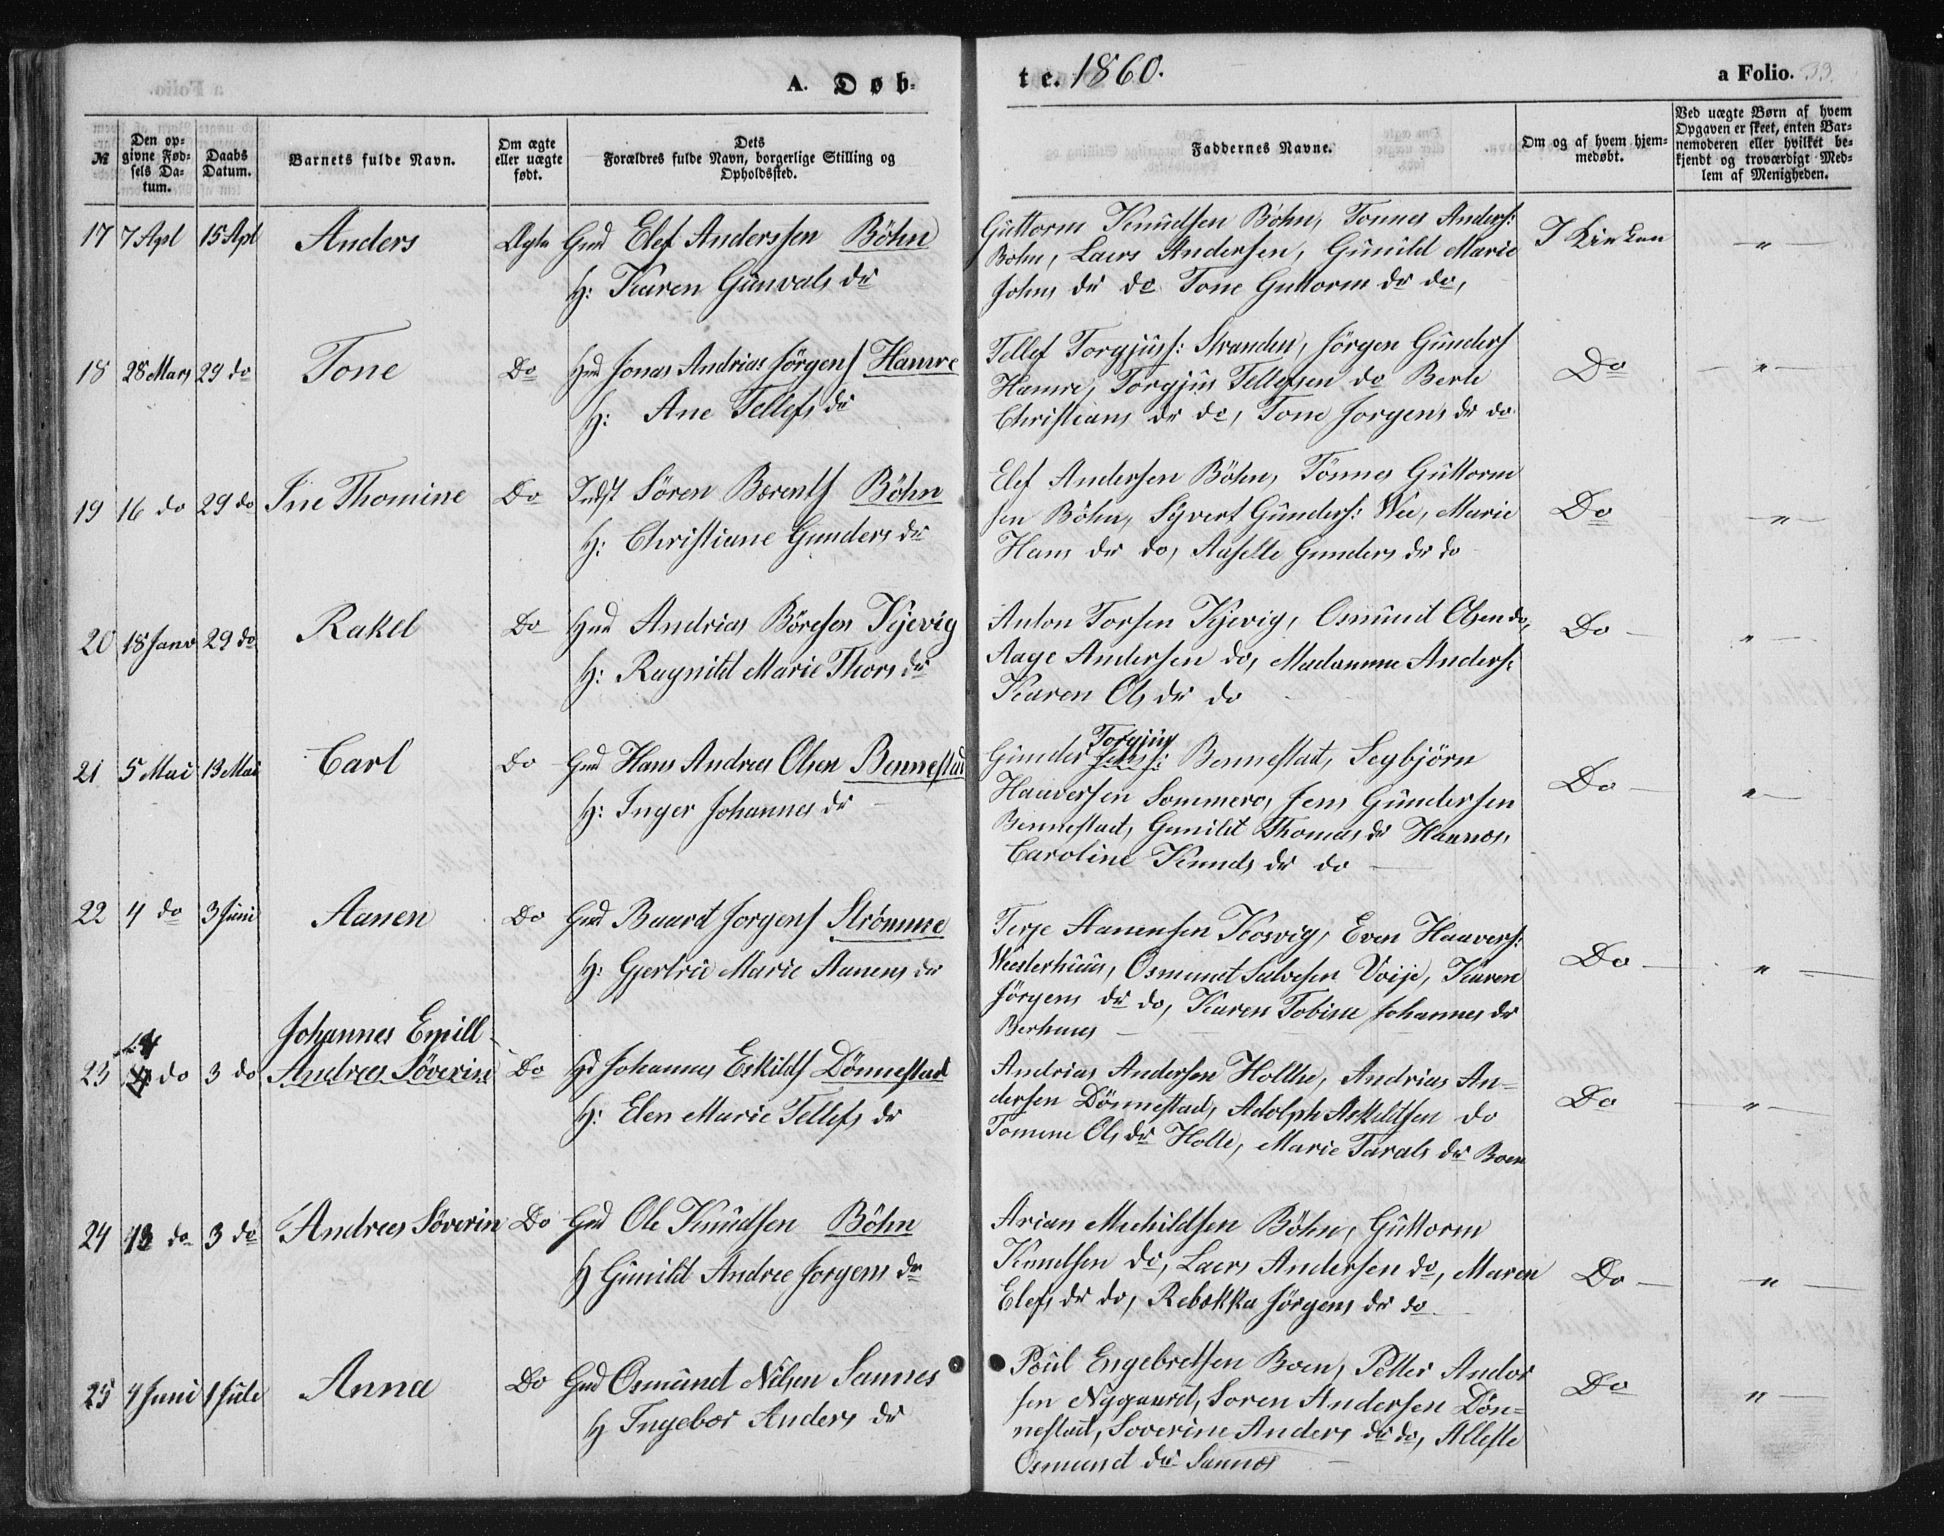 A. Døb-
te. 1860.
a Folio. 33.
№
Den op-
givne Fød-
sels Da-
tum.
Daabs
Datum.
Barnets fulde Navn.
Om ægte
eller uægte
født.
Dets
Forældres fulde Navn, borgerlige Stilling og
Opholdssted.
Faddernes Navne.
Om og af hvem hjem-
medøbt.
Ved uægte Børn af hvem
Opgaven er skeet, enten Bar-
nemoderen eller hvilket be-
kjendt og troværdigt Med-
lem af Menigheden.
17 7 Apl 15 Apl Anders Ægte Gmd Elef Anderssen Böhn
H: Karen Gunvals dr
Guttorm Knudsen Böhn, Tonnes Anders:
Bohn, Laers Andersen, Gunild Marie
Johns dr do Tone Guttorm dr do,
I Kirken
18 28 Mars 29 do Tone Do Hmd Jonas Andrias Jörgens Hamre
H: Ane Tellefs dr
Tellef Torgjus: Stranden, Jörgen Gunders
Hamre, Torgjus Tellefsen do Berte
Christians dr do, Tone Jorgens dr do
Do
19 16 do 29 do Ine Thomine Do Indst Sören Bærents Böhn
H: Christiane Gunders dr
Elef Andersen Böhn, Tönnes Guttorm
sen Böhn, Syvert Gunders: Wee, Marie
Hans dr do, Aaselle Gunders dr do
Do
20 18 Janv 29 do Rakel Do Hmd Andrias Böresen Kjevig
H: Ragnild Marie Thors dr
Anton Torsen Kjevig, Osmund Olsen do,
Aage Andersen do, Madamme Anders:
Karen Ols dr do
Do
21 5 Mai 13 Mai Carl Do Gmd Hans Andreas Olsen Bennestad
H: Inger Johannes dr
Torgjus
Gunder Jens: Bennestad, Segbjörn
Haaversen Sommero, Jens Gundersen
Bennestad, Gunild Thomas dr Hannos,
Caroline Knuds dr do
Do
22 4 do 3 Juni Aanen Do Gmd Baard Jorgens Strömme
H: Gjertrud Marie Aanens dr
Terje Aanensen Kosvig, Even Haavers:
Westerhuus, Osmund Salvesen Voije, Karen
Jörgens dr do, Karen Tobine Johannes dr
Berhuus
Do
Johannes Emill
23 14 do 3 do Andreas Söverin Do Hd Johannes Eskilds Dönnestad
H: Elen Marie Tellefs dr
Andrias Andersen Holthe, Andrias An-
dersen Dönnestad, Adolph Askildsen do
Tomine Ols dr Holte, Marie Tarals dr Boen
Do
24 13 do 3 do Andreas Söverin Do Gmd Ole Knudsen Böhn
H Gunild Andrea Jorgens dr
Arian Mechildsen Böhn, Guttorm
Knudsen do, Laers Andersen do, Maren
Elefs dr do, Rebækka Jörgens dr do
Do
25 4 Juni 1 Juli Anna Do Gmd Osmund Nilsen Sannes
H Ingebor Anders dr
Poul Engebretsen Boen, Petter Ander
sen Nygaard, Soren Andersen Dön-
nestad, Soverine Anders dr do, Alleste
Osmund dr Sannes
Do